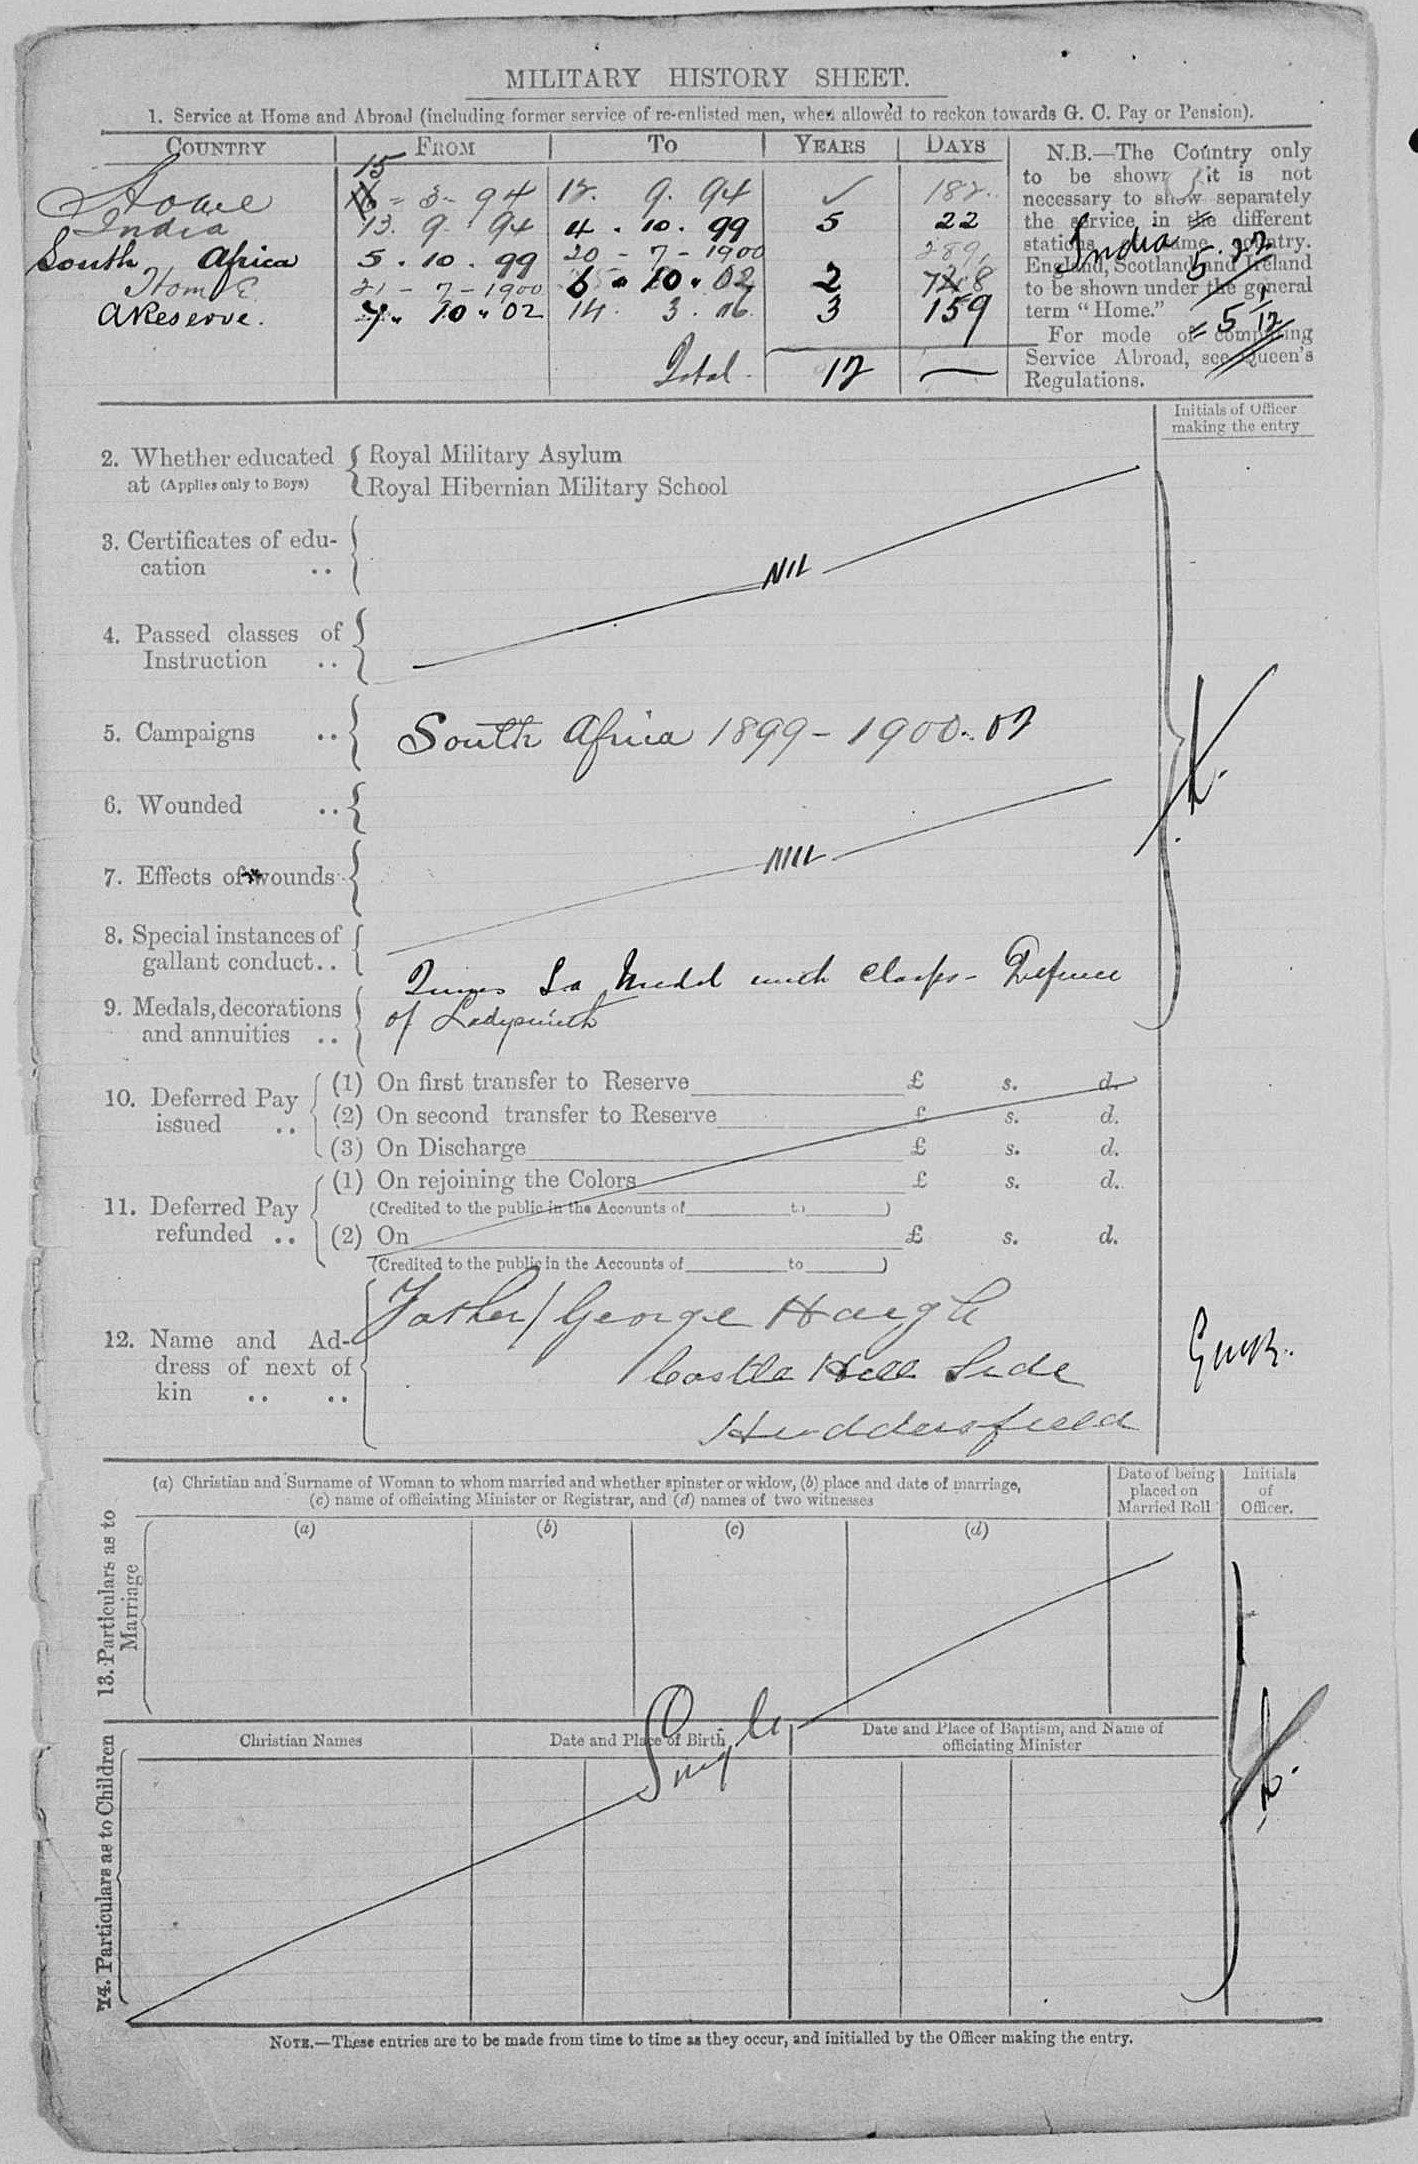 MILITARY HISTORY SHEET.
1. Service at Home and Abroad (including former service of re-enlisted men, when allow'd to reckon towards G. C. Pay or Pension).
COUNTRY FROM TO YEARS DAYS
15
Home 16 - 3 - 94 12. 9. 94 ✓ 182.
India 13. 9. 94 4. 10. 99 5 22
South Africa 5. 10. 99 20 - 7 - 1900 289
Home 21 - 7 - 1900 6 . 10 . 02 2 78
A Reserve. 7. 10. 02 14. 3. 06 3 159
Total 12 —
N.B.—The Country only
to be shown, it is not
necessary to show separately
the service in the different
stations same country.
England, Scotland and Ireland
to be shown under the general
term "Home."
For mode of computing
Service Abroad, see Queen's
Regulations.
India 5. 22
= 5 1/12
Initials of Officer
making the entry
2. Whether educated Royal Military Asylum
at (Applies only to Boys) Royal Hibernian Military School
3. Certificates of edu-
cation ..
NIL
4. Passed classes of
Instruction ..
5. Campaigns .. South Africa 1899 - 1900. 02
6. Wounded ..
NIL
7. Effects of wounds
8. Special instances of
gallant conduct..
Queens SA Medal with Clasps - Defence
of Ladysmith
9. Medals, decorations
and annuities ..
10. Deferred Pay
issued ..
(1) On first transfer to Reserve £ s. d.
(2) On second transfer to Reserve £ s. d.
(3) On Discharge £ s. d.
11. Deferred Pay
refunded ..
(1) On rejoining the Colors £ s. d.
(Credited to the public in the Accounts of to )
(2) On £ s. d.
(Credited to the public in the Accounts of to )
12. Name and Ad-
dress of next of
kin .. ..
Father / George Haigh
Castle Hill Side
Huddersfield
(a) Christian and Surname of Woman to whom married and whether spinster or widow, (b) place and date of marriage,
(c) name of officiating Minister or Registrar, and (d) names of two witnesses
Date of being
placed on
Married Roll
Initials
of
Officer.
13. Particulars as to
Marriage
(a) (b) (c) (d)
Single
14. Particulars as to Children
Christian Names Date and Place of Birth Date and Place of Baptism, and Name of
officiating Minister
NOTE.—These entries are to be made from time to time as they occur, and initialled by the Officer making the entry.